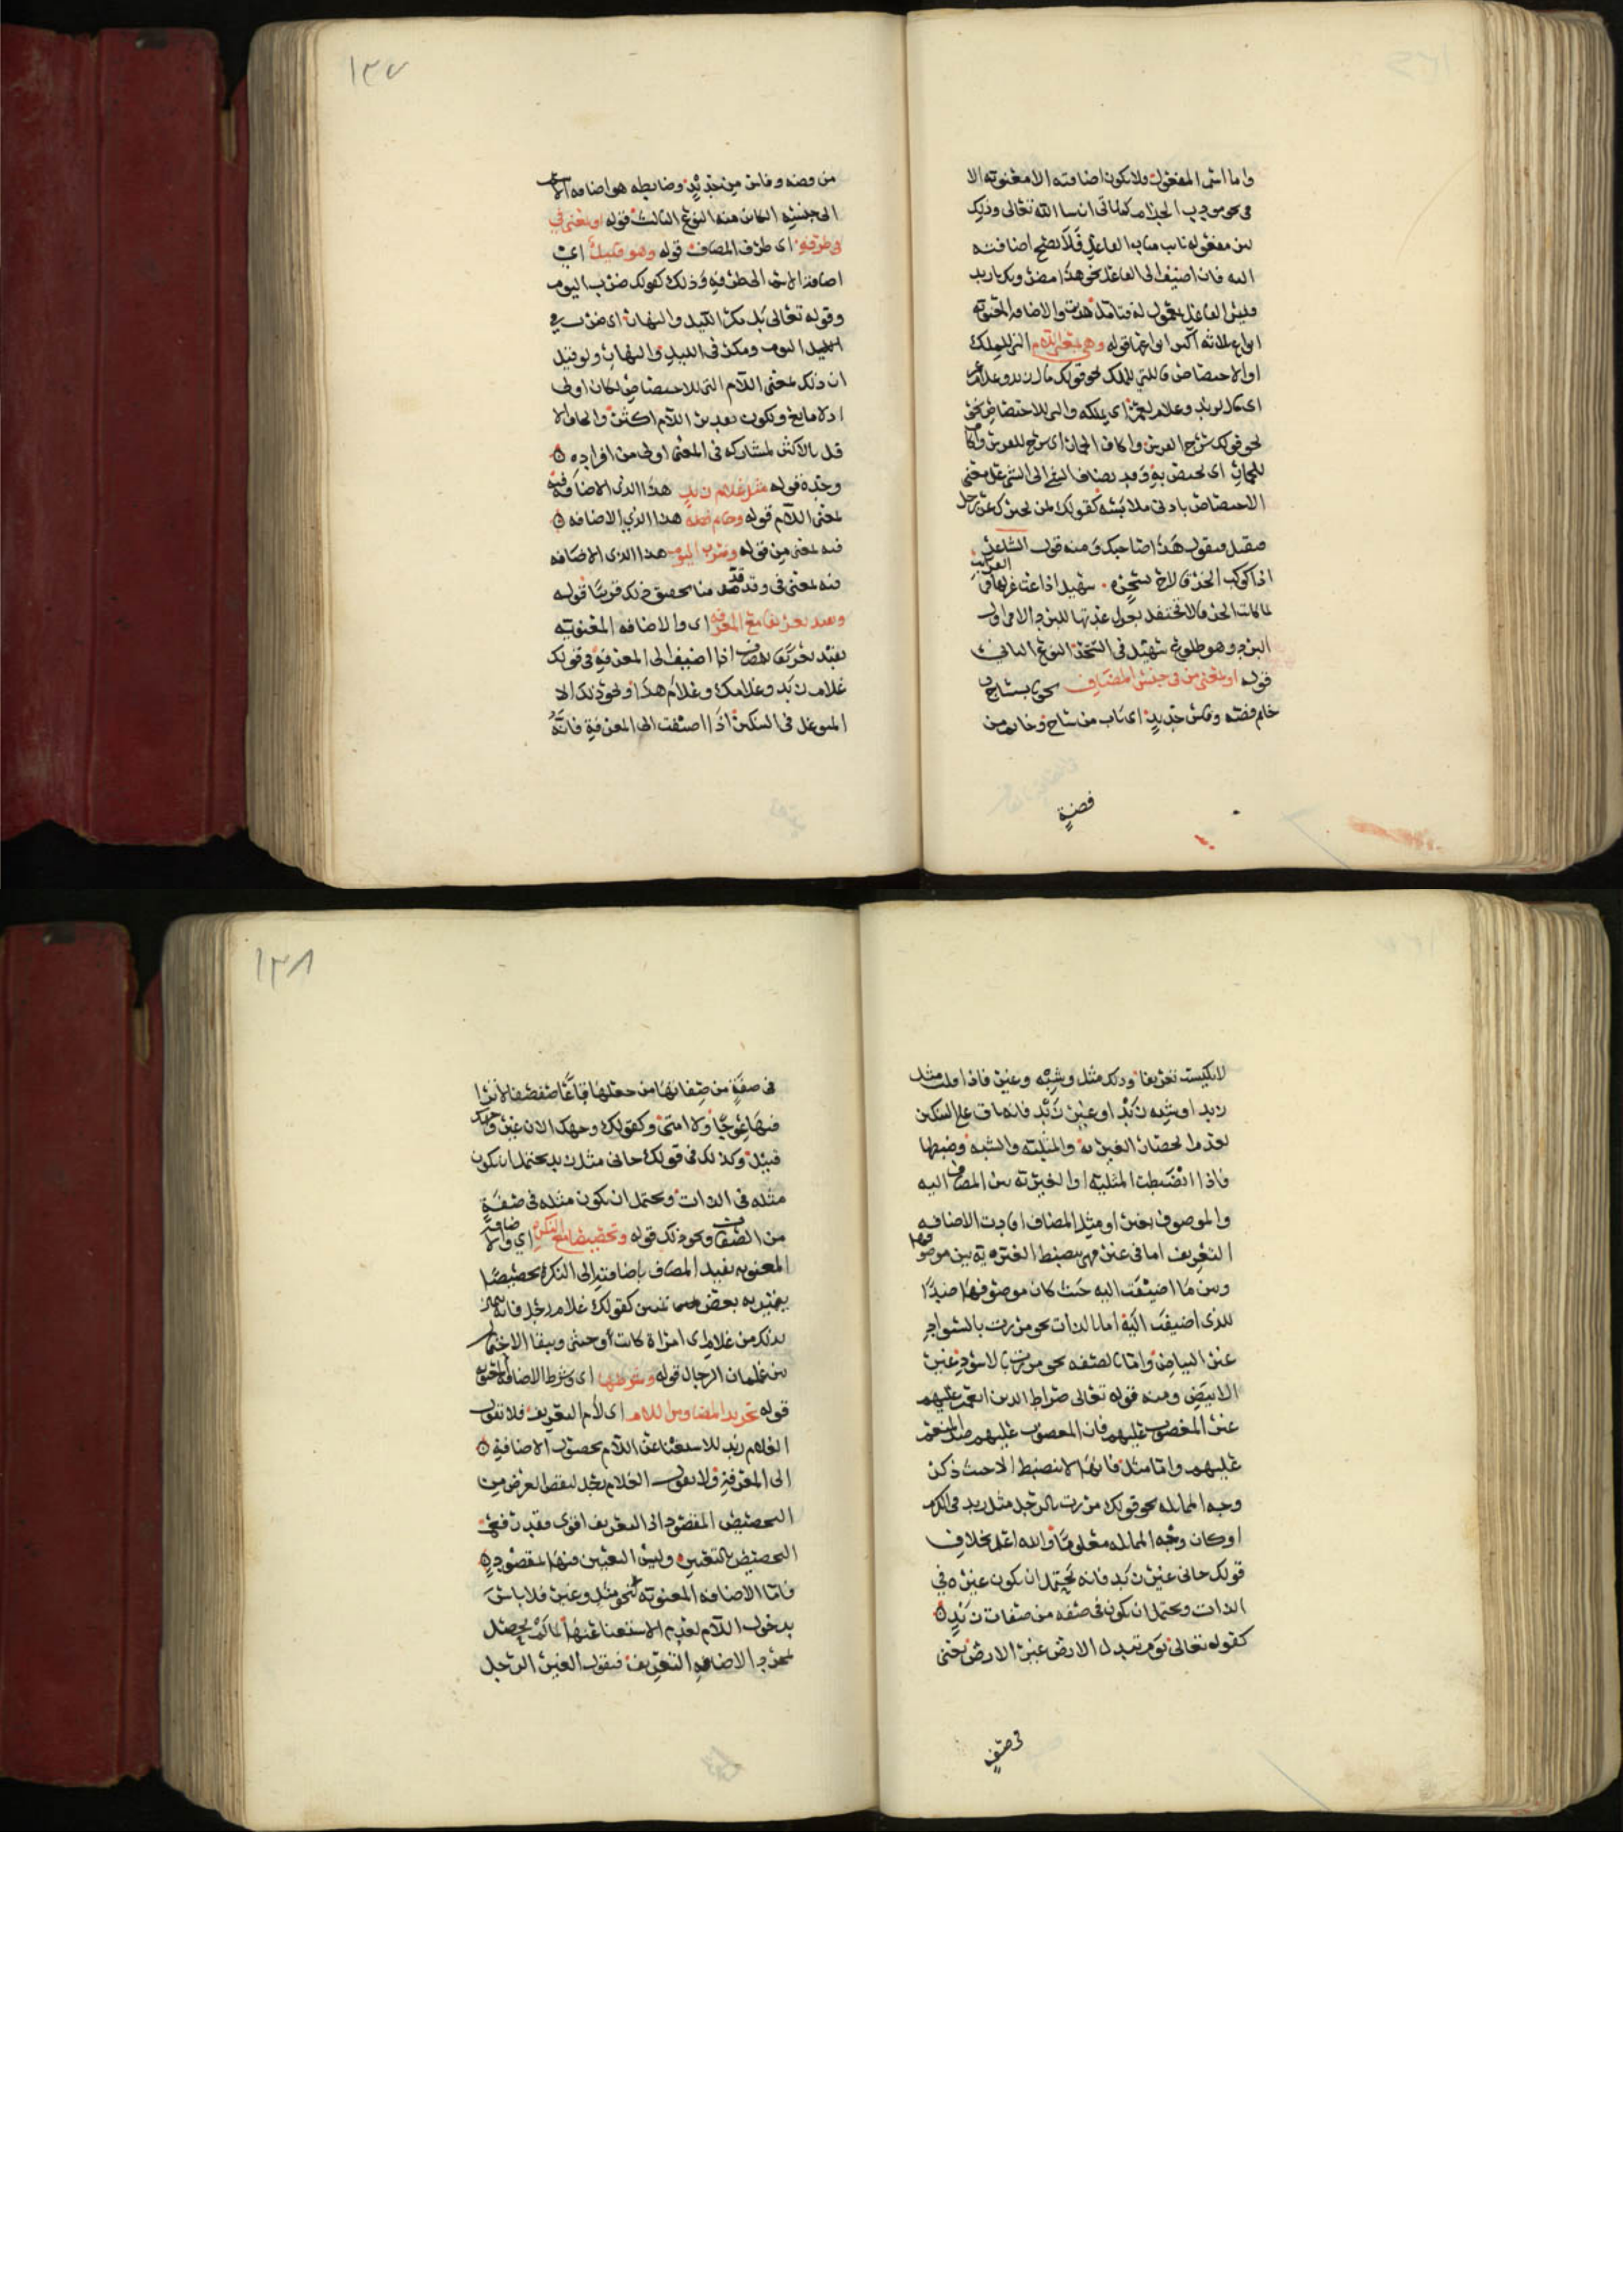 واما اسم المفعول فلا يكون اضافته الا معنوية الا
في نحو مودب الخدام كما ياتي ان شا الله تعالى وذلك
لان مفعوله ناب مناب الفاعل فلا يصح اضافته
اليه فان اضيف الى الفاعل نحو هذا مضروبك يازيد
فليس الفاعل بمعمول له فتامل هذيت والاضافه المعنويه
انواع ثلاثه اكثر انواعها قوله وهي بمعنى اللام التي للملك
او الاختصاص فاللتي للملك نحو قولك مال زيد وغلام عمر
اي مال لزيد وغلام لعمر اي يملكه والتي للاختصاص نحو
نحو قولك سرج الفرس واكاف الحمار اي سرج للفرس واكاف
للحمار اي يختص به وقد يضاف الشي الى الشي على معنى
الاختصاص بادنى ملابسة كقولك لمن لحقك عن رجل
مقبل فيقول هذا صاحبك ومنه قول الشاعر
اذا كوكب الخرقا لاح بسحرة ۰ سهيل اذاعت غزلها في
القرايب
لما كانت الخرقا لا تحتفل بعمل عدتها للبرد الا في اول
البرد وهو طلوع سهيل في السحر النوع الثاني
قوله او بمعنى من في جنس المضاف نحو باب ساج
خاتم فضه وفاس حديد اي باب من ساج وخاتم من
فضة
١٣٧
من فضه وفاس من حديد وضابطه هو اضافه الاسم
الى جنسه الكاين منه النوع الثالث قوله او بمعنى في
في ظرفه اي ظرف المضاف قوله وهو قليل اي
اضافة الاسم الى ظرفه وذلك كقولك ضرب اليوم
وقوله تعالى بل مكر الليل والنهار اي ضرب في
اليوم ومكر في الليل والنهار ولو قيل
ان ذلك بمعنى اللام التي للاختصاص لكان اولى
اذ لا مانع وتكون تقدير اللام اكثر والحاق الا
قل بالاكثر لمشاركه في المعنى اولى من افراده ه
وحده قوله مثل غلام زيد هذا الذي الاضافه فيه
بمعنى اللام قوله وخاتم فضه هذا الذي الاضافه ه
فيه بمعنى من قوله وضرب اليوم هذا الذي الاضافه
فيه بمعنى في وقد قدمنا تحقيق ذلك قريبا قوله
وتفيد تعريفا مع المعرفه اي والاضافه المعنويه
تفيد تعريف المضاف اذا اضيف الى المعرفه في قولك
غلام زيد وغلامك وغلام هذا ونحو ذلك الا
المتوغل في التنكير اذا اضيفت الى المعرفة فانه
لا يكتسب تعريفا وذلك مثل وشبه وغير فاذا قلت مثل
زيد او شبه زيد او غير زيد فانه باق على التنكير
لعدم انحصار الغيريه والمثلية والشبه وضبطها
فاذا انضبطت المثلية او الغيرية بين المضاف اليه
والموصوف بغير او مثل المضاف افادت الاضافه
التعريف اما في غير فهي ينضبط الغيرية بين موصوفها
وبين ما اضيفت اليه حيث كان موصوفها ضدا
للذي اضيفت اليه اما بالذات نحو مررت بالسواد
غير البياض واما بالصفه نحو مررت بالاسود غير
الابيض ومنه قوله تعالى صراط الذين انعمت عليهم
غير المغضوب عليهم فان المغضوب عليهم ضد المنعم
عليهم واما مثل فانها لا تنضبط الا حيث ذكر
وجه المماثله نحو قولك مررت بالرجل مثل زيد في الكرم
او كان وجه المماثله معلوما والله اعلم بخلاف
قولك جاني غير زيد فانه يحتمل ان يكون غيره في
الذات ويحتمل ان يكون في صفه من صفات زيد ه
كقوله تعالى يوم تبدل الارض غير الارض يعني
في صفة
١٣٨
في صفة من صفاتها من جعلها قاعا صفصفا لا ترى
فيها عوجا ولا امتى وكقولك وجهك الان غير وجهك
قبيل وكذلك في قولك جاني مثل زيد يحتمل ان يكون
مثله في الذات ويحتمل ان يكون مثله في صفة
من الصفات ونحو ذلك قوله وتخصيصا مع النكرة اي والاضافة
المعنويه تفيد المضاف باضافته الى النكره تخصيصا
يتميز به بعض تميز كقولك غلام رجل فانه تميز
بذلك من غلام اي امراة كانت او خنثى ويبقا الاحتمال
بين غلمان الرجال قوله وشرطها اي وشرط الاضافه المعنويه
قوله تجريد المضاف من اللام اي لام التعريف فلا تقول
الغلام زيد للاستغنا عن اللام بحصول الاضافة ه
الى المعرفة ولا تقول الغلام رجل لنقص الغرض من
التخصيص المقصود الى التعريف اقوى فقد رفع
التخصيص بالتعيين وليس التعيين منها مقصود ه
فاما الاضافه المعنويه نحو مثل وغير فلا باس
بدخول اللام لعدم الاستغنا عنها لما لم يحصل
بمجرد الاضافه التعريف فيقول الغير الرجل